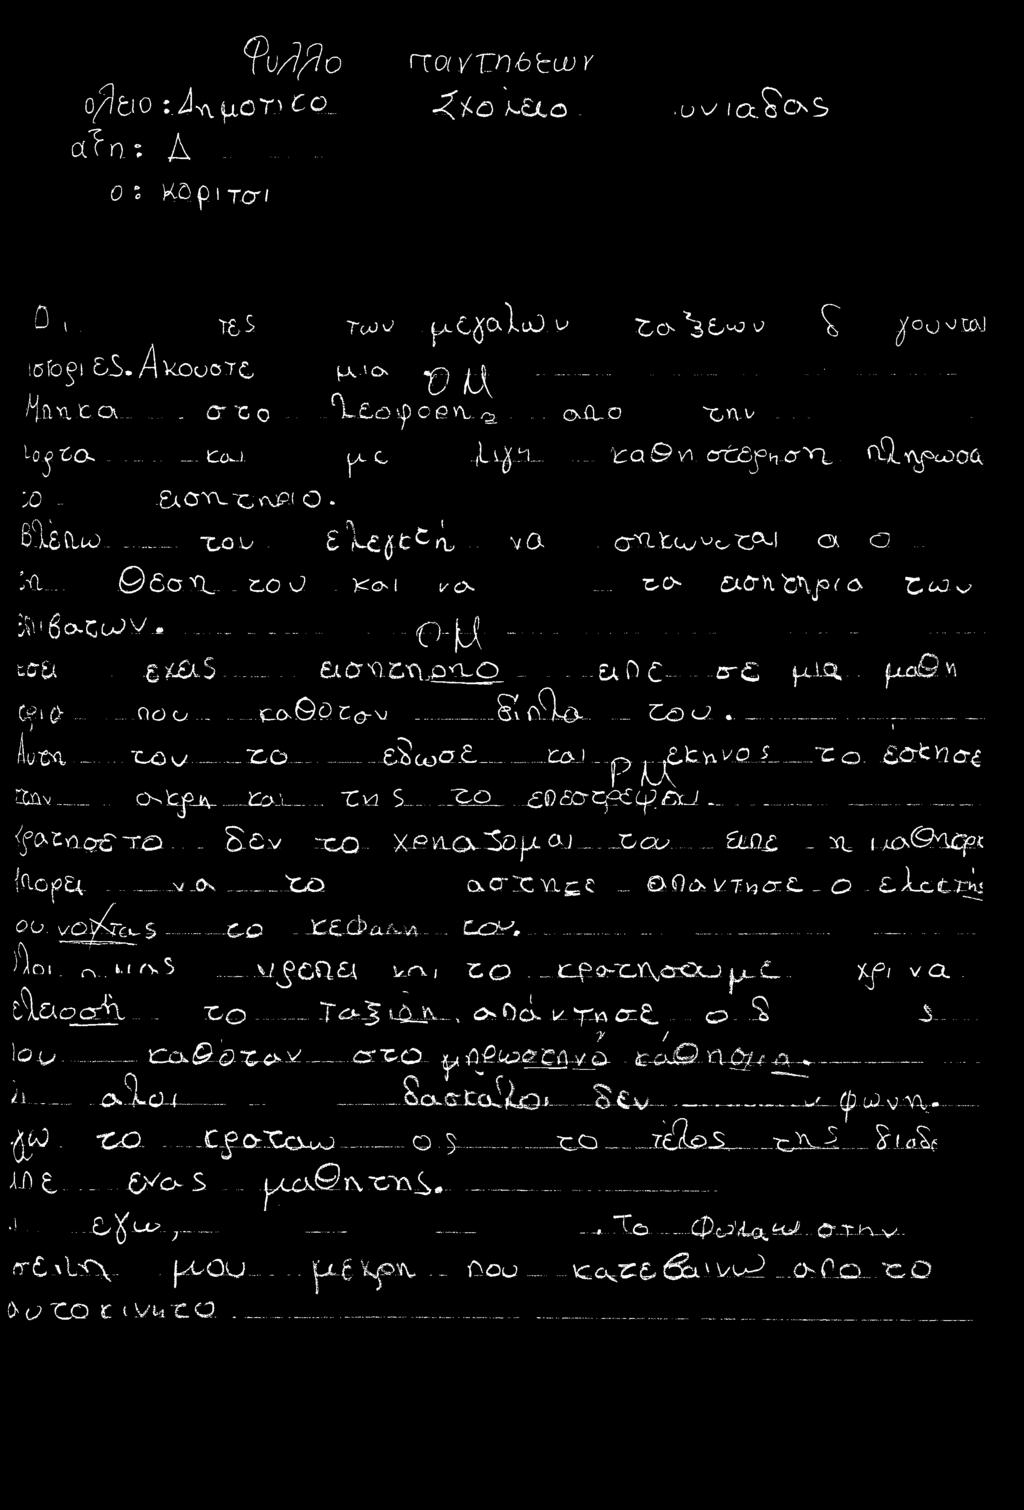 Φυλλο παντησεων
ολειο: Δημοτικο Σχολειο υνιαδας
αξη: Δ
ο: κοριτσι
Οι τες των μεγαλων ταξεων δ γουνται
ιστοριες. Ακουστε μια
ΟΜ
Μπηκα στο λεοφορη απο την
πορτα και με λιγη καθηστέρηση πληρωσα
το εισητηριο.
Βλέπω τον ελεγκτή να σηκωνεται α ο
τη θεση του και να τα εισητηρια των
επιβατων.
ΟΜ
εσει εχεις εισητηρηο ειπε σε μια μαθη
τρια που καθοταν διπλα του.
Αυτη του το εδωσε και εκηνος το έσκησε
ΡΜ
στην ακρη και της το επεστρεψει.
Κρατησε το δεν το χρηαζομαι του ειπε η μαθητρι
Μπορει να το απαντησε ο
ου το κεφαλη του.
πρεπει και το κρατησουμε χρι να
το ταξιδη, απάντησε ο δ ς
που καθόταν στο μπρωστηνό κάθησμα.
οι αλοι δασκαλοι δεν φωνη.
γω το κραταω ος το τέλος της διαδ
ιπε ενας μαθητης.
εγω, . Το φυλαω στην
τσεπη μου μεχρη που κατεβαινω απο το
αυτοκινητο.